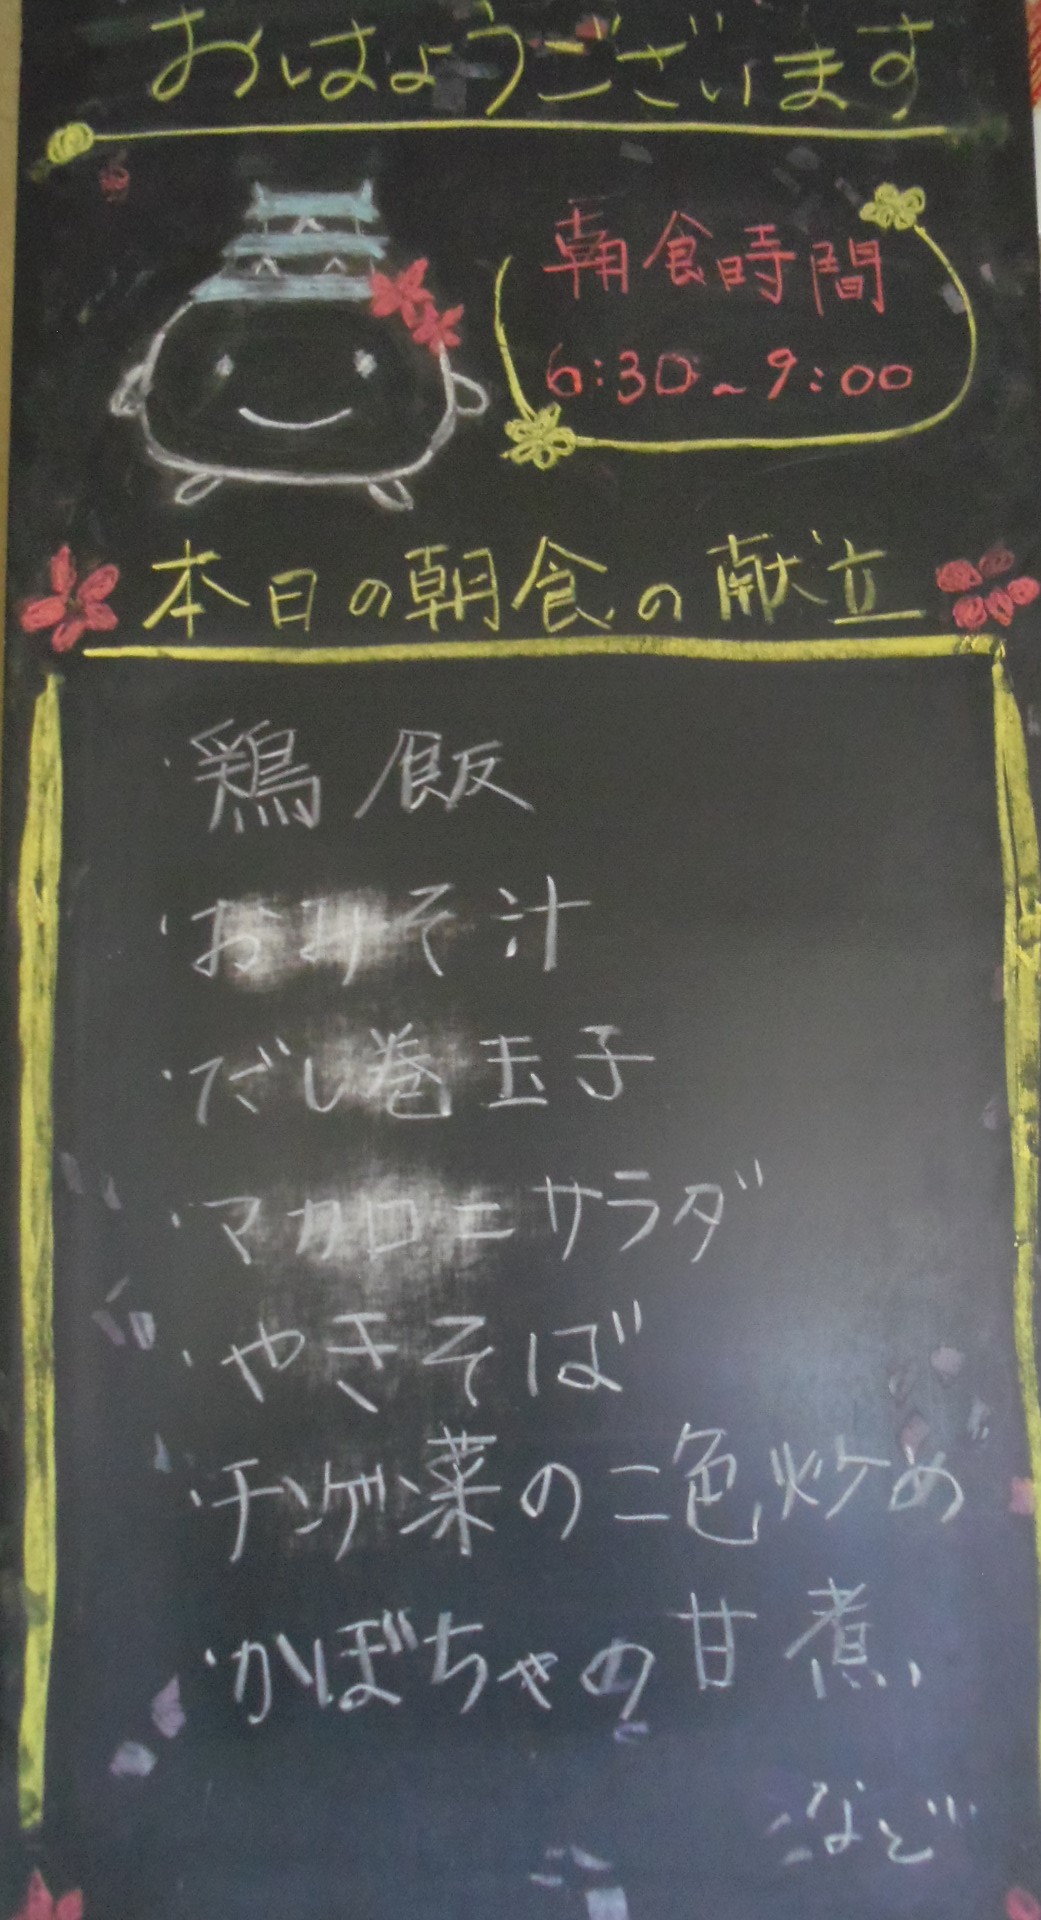 おはようございます
朝食時間
6:30~9:00
本日の朝食の献立
・鶏飯
・おみそ汁
・だし巻玉子
・マカロニサラダ
・やきそば
・チンゲン菜の二色炒め
・かぼちゃの甘煮
など